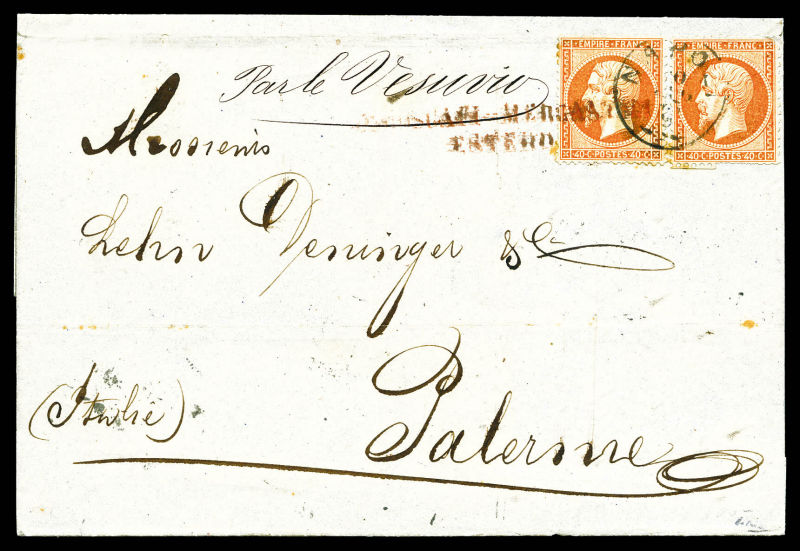 EMPIRE FRANC
EMPIRE FRANC
40 C POSTES 40 C
40 C POSTES 40 C
Par le Vesuvio
ESTERO
Messieurs
Lehn Deninger & Cie
(Italie)
Palerme